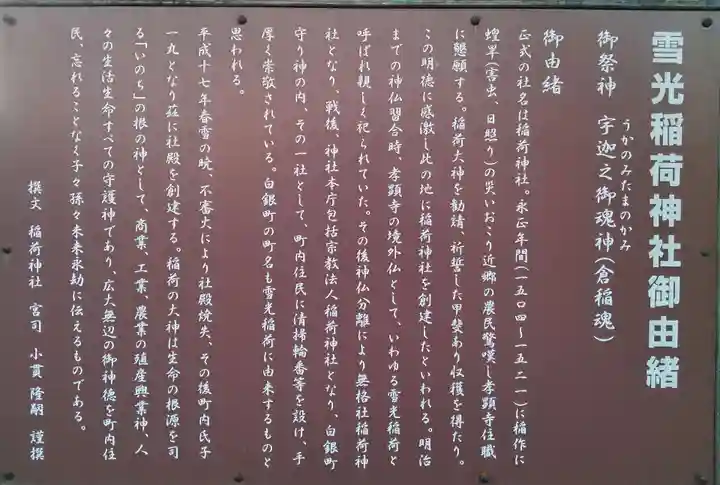 雪光稲荷神社御由緒
うかのみたまのかみ
御祭神　宇迦之御魂神(倉稲魂)
御由緒
正式の社名は稲荷神社。永正年間(一五〇四~一五二一)に稲作に
蝗旱(害虫、日照り)の災いおこり近郷の農民驚嘆し孝顕寺住職
に懇願する。稲荷大神を勧請、祈誓した甲斐あり収穫を得たり。
この明徳に感激し此の地に稲荷神社を創建したといわれる。明治
までの神仏習合時、孝顕寺の境外仏として、いわゆる雪光稲荷と
呼ばれ親しく祀られていた。その後神仏分離により無格社稲荷神
社となり、戦後、神社本庁包括宗教法人稲荷神社となり、白銀町
守り神の内、その一社として、町内住民に清掃輪番等を設け、手
厚く崇敬されている。白銀町の町名も雪光稲荷に由来するものと
思われる。
平成十七年春雪の暁、不審火により社殿焼失、その後町内氏子
一丸となり茲に社殿を創建する。稲荷の大神は生命の根源を司
る「いのち」の根の神として、商業、工業、農業の殖産興業神、人
々の生活生命すべての守護神であり、広大無辺の御神徳を町内住
民、忘れることなく子々孫々未来永劫に伝えるものである。
撰文　稲荷神社　宮司　小貫隆嗣　謹撰